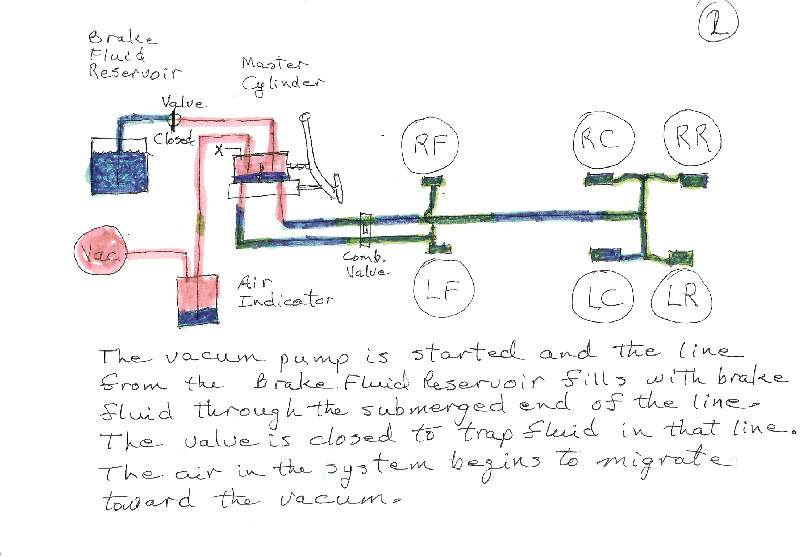 2
Brake
Fluid
Reservoir
Master
Cylinder
Valve
Closed
X
RF
RC
RR
Vac
Comb.
Valve
Air
Indicator
LF
LC
LR
The vacum pump is started and the line
from the Brake Fluid Reservoir fills with brake
fluid through the submerged end of the line.
The value is closed to trap fluid in that line.
The air in the system begins to migrate
toward the vacum.